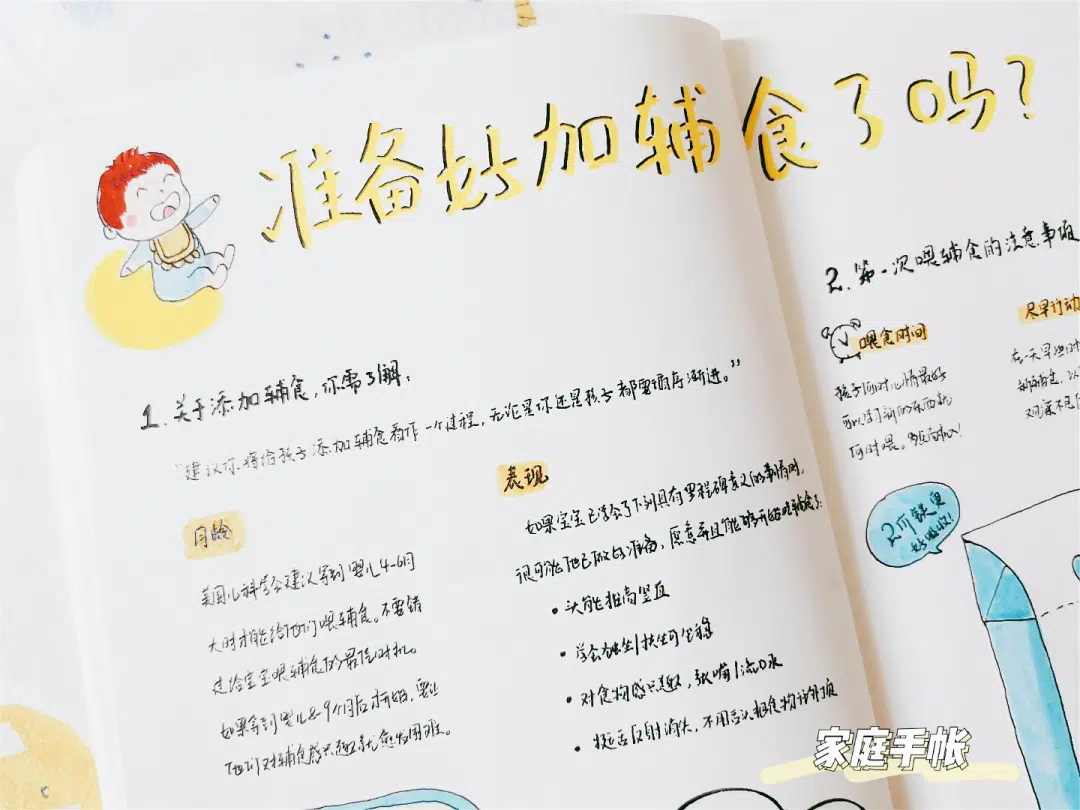 准备好加辅食了吗?
1. 关于添加辅食,你需了解:
“建议你将给孩子添加辅食看作一个过程,无论是你还是孩子都要循序渐进。”
月龄
美国儿科学会建议等到婴儿4-6月
大时才能给他们喂辅食。不要错
过给宝宝喂辅食的最佳时机。
如果等到婴儿8-9个月后才开始,要让
他们对辅食感兴趣就愈发困难。
表现
如果宝宝已学会了下列具有里程碑意义的事情时,
很可能他已做好准备,愿意并且能够开始吃辅食了:
• 头能抬高竖直
• 学会独坐/扶坐可坐稳
• 对食物感兴趣,张嘴/流口水
• 挺舌反射消失,不用舌头把食物往外顶
2. 第一次喂辅食的注意事项
喂食时间
孩子何时心情最好
可以学习新的东西就
何时喂,
尽早行动
在一天早些时
2个
家庭手帐